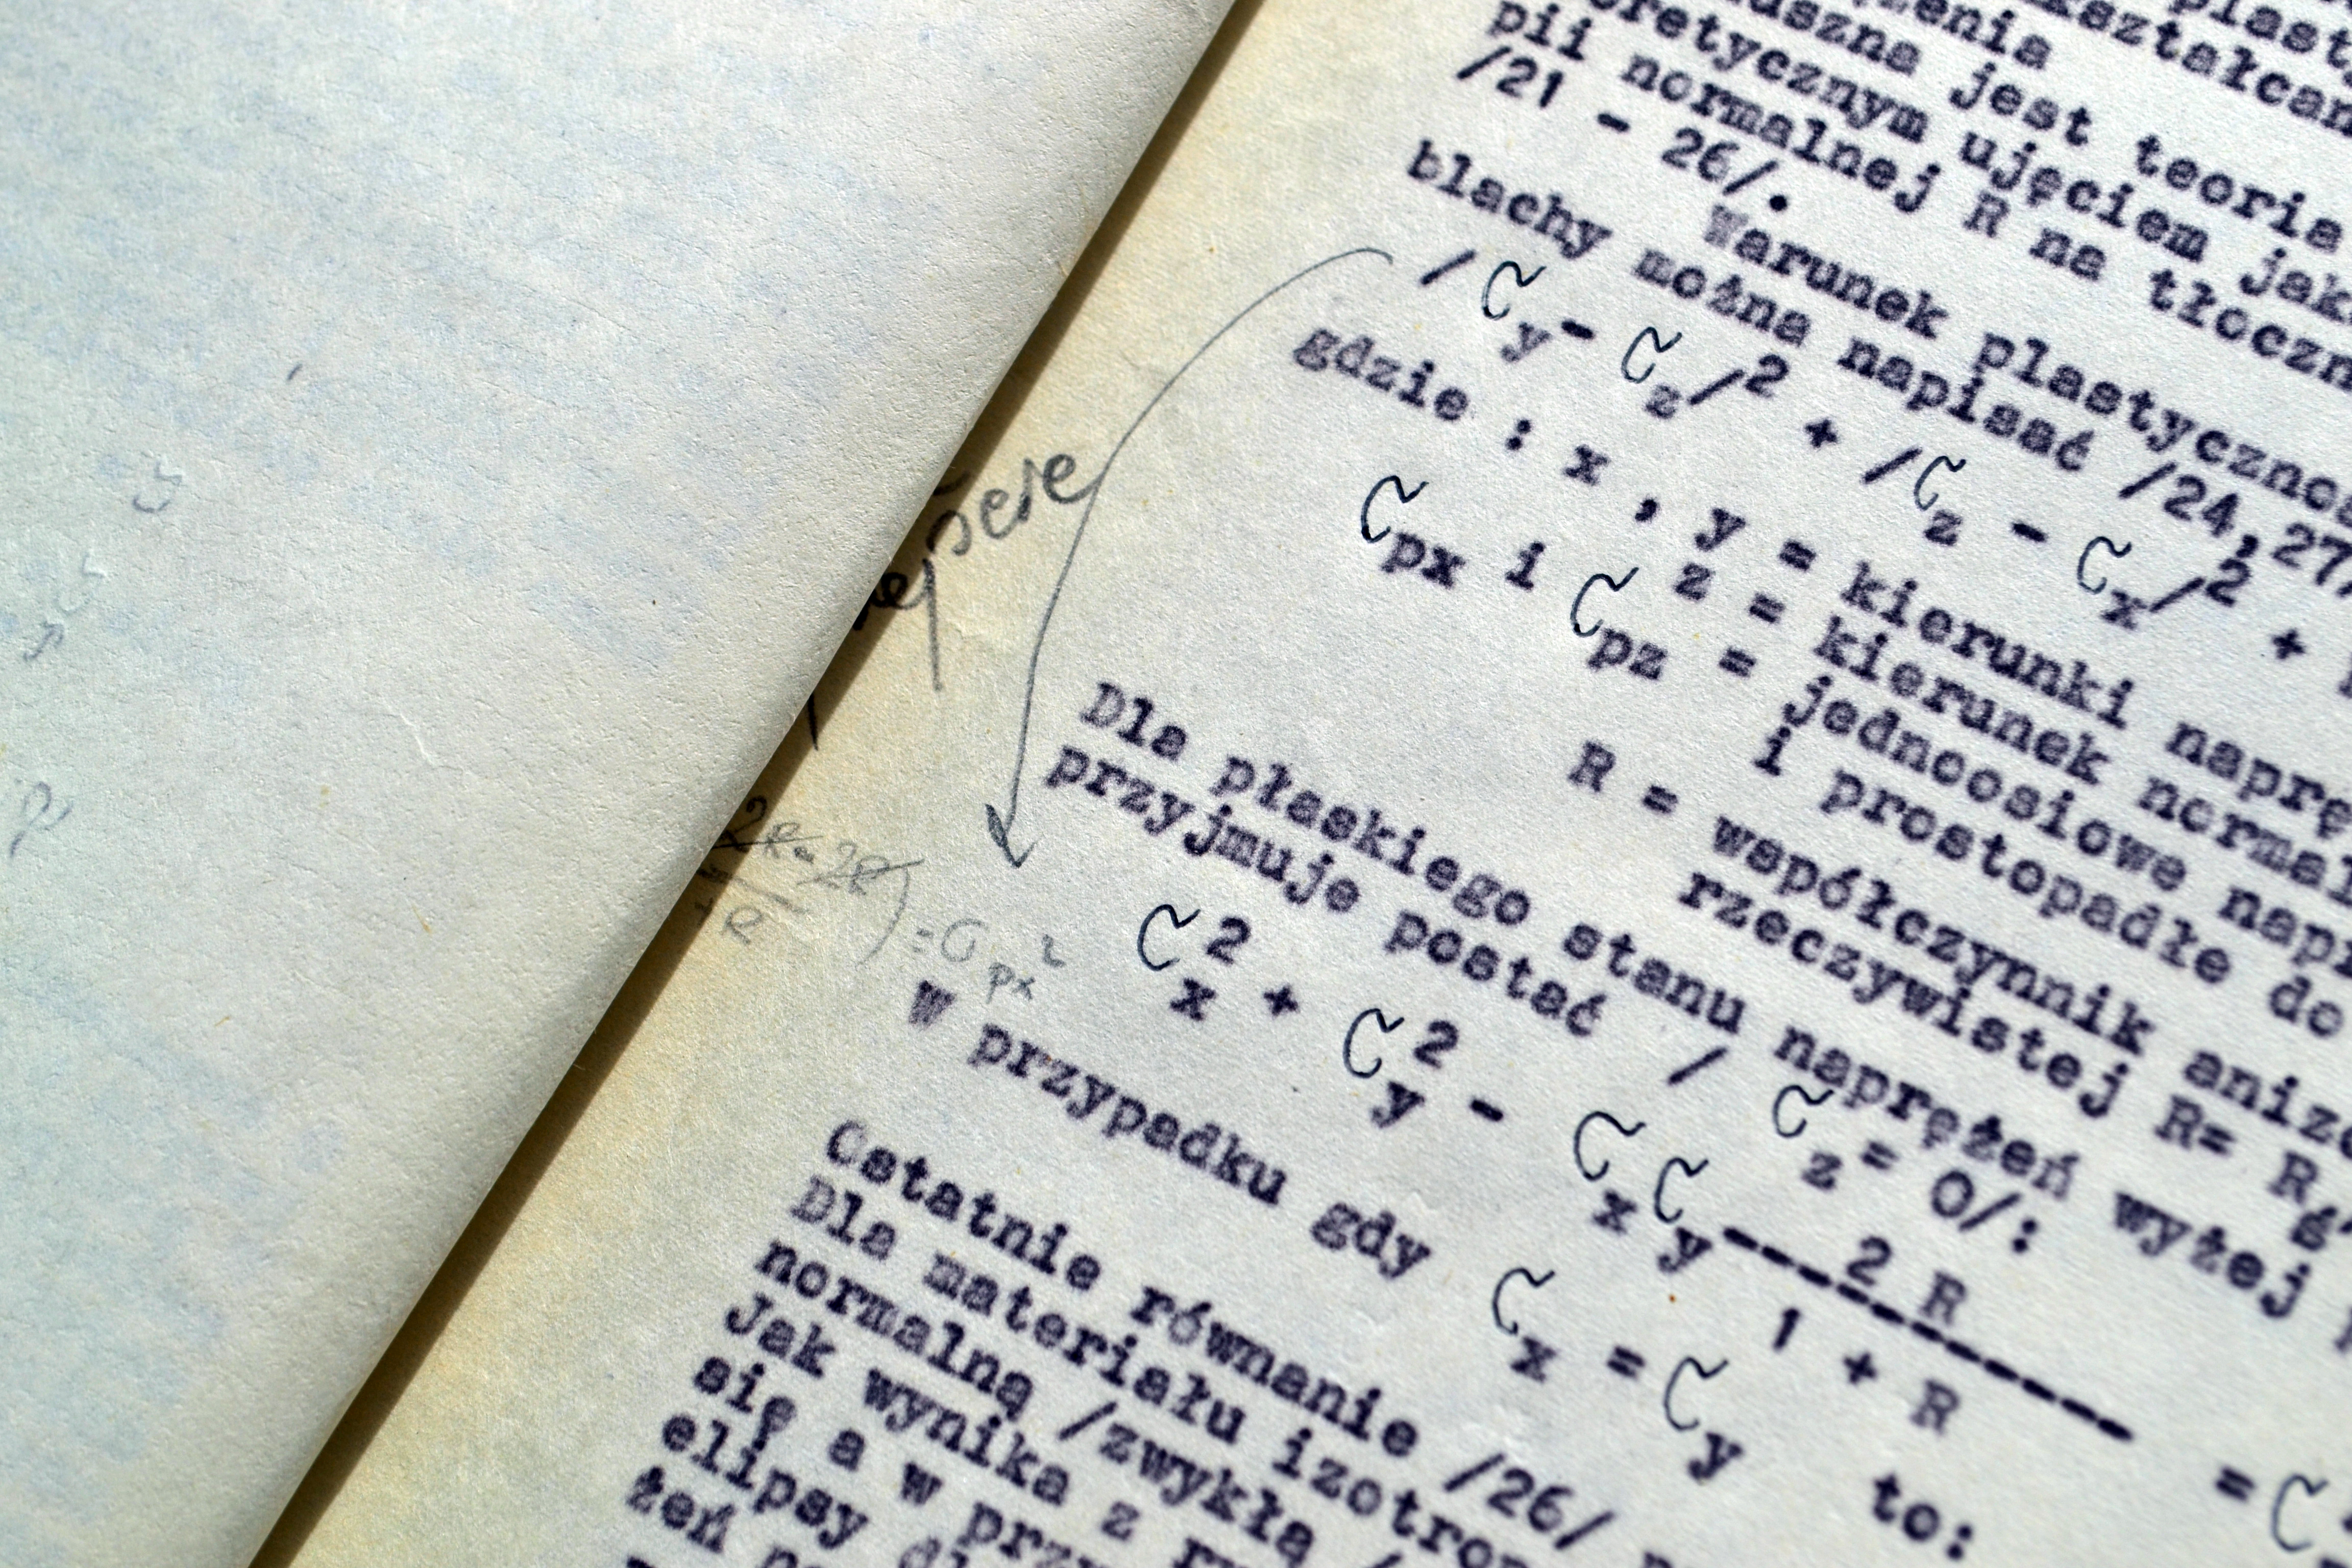 plasty
kształcan
uszna jest teoria
retycznym ujęciem jak
pii normalnej R na tłoczn
/21 - 26/.
Warunek plastycznoś
blachy można napisać /24,27,
/σy - σz/² + /σz - σx/² +
gdzie : x , y = kierunki naprę
z = kierunek normal
σpx i σpz = jednoosiowe napr
i prostopadłe do
R = współczynnik anizo
rzeczywistej R= R
Dla płaskiego stanu naprężeń wyżej
przyjmuje postać / σz= 0/:
σx² + σy² - σxσy 2 R
1 + R = σ
= σpx²
W przypadku gdy σx = σy to:
Ostatnie równanie /26/
Dla materiału izotrop
normalną /zwykłą /
Jak wynika z r
się a w prz
elipsy d
żeń